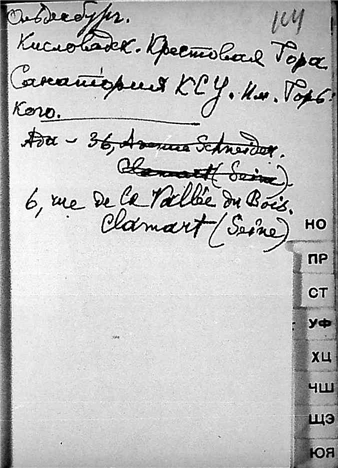 Ольденбург.
Кисловодск. Крестовая Гора
Санатория КСУ. Им. Горь-
кого.
Ада – 36, Avenue Schneider.
Clamart (Seine).
6, rue de la Vallée du Bois.
Clamart (Seine)
НО
ПР
СТ
УФ
ХЦ
ЧШ
ЩЭ
ЮЯ